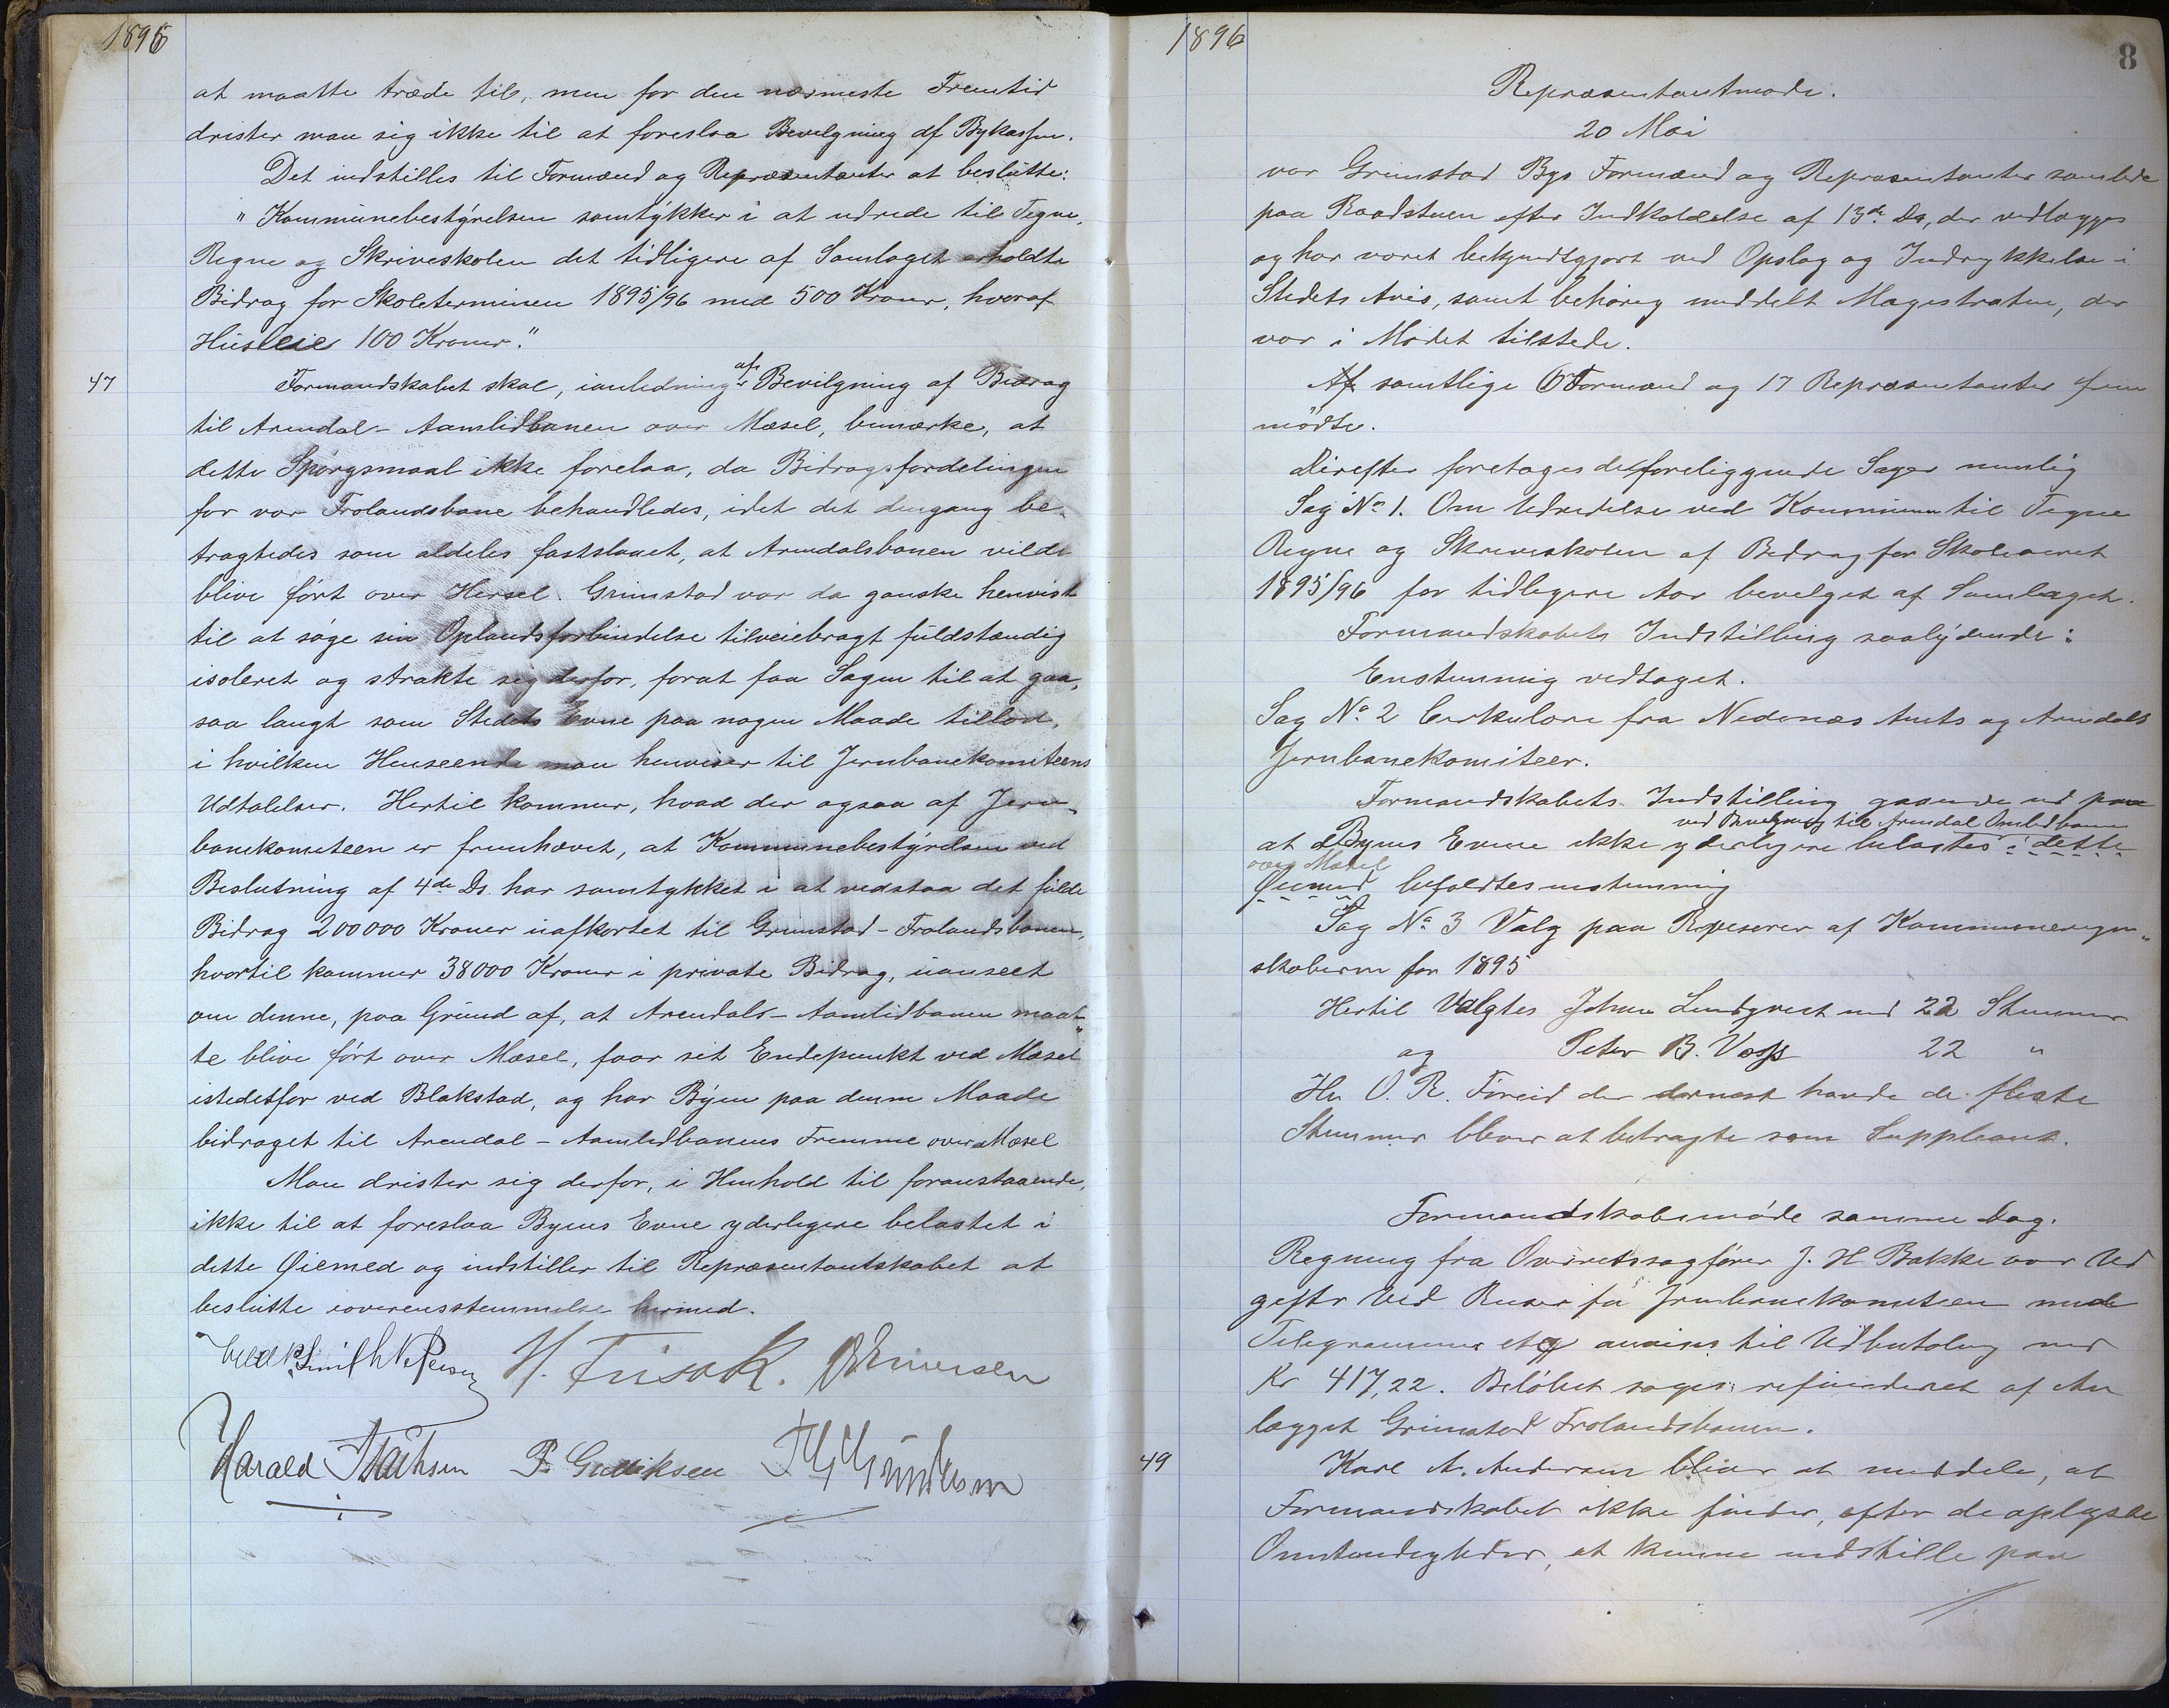 1896
at maatte træde til, men for den nærmeste Fremtid
drister man sig ikke til at foreslaa Bevilgning af Bykassen.
Det indstilles til Formænd og Repræsentanter at beslutte:
"Kommunebestyrelsen samtykker i at udrede til Tegne,
Regne og Skriveskolen det tidligere af Samlaget erholdte
Bidrag for Skoleterminen 1895/96 med 500 Kroner, hvoraf
Husleie 100 Kroner."
47
Formandskabet skal, ianledning af Bevilgning af Bidrag
til Arendal-Aamlidbanen over Mæsel, bemærke, at
dette Spørgsmaal ikke forelaa, da Bidragsfordelingen
for vor Frolandsbane behandledes, idet det dengang be-
tragtedes som aldeles fastslaaet, at Arendalsbanen vilde
blive ført over Hersel. Grimstad var da ganske henvist
til at søge sin Oplandsforbindelse tilveiebragt fuldstændig
isoleret og strakte sig derfor, forat faa Sagen til at gaa,
saa langt som Stedets Evne paa nogen Maade tillod,
i hvilken Henseende man henviser til Jernbanekomiteens
Udtalelser. Hertil kommer, hvad der ogsaa af Jern-
banekomiteen er fremhævet, at Kommunebestyrelsen ved
Beslutning af 4de Ds. har samtykket i at vedstaa det fulde
Bidrag 200000 Kroner uafkortet til Grimstad-Frolandsbanen,
hvortil kommer 38000 Kroner i private Bidrag, uanseet
om denne, paa Grund af, at Arendals-Aamlidbanen maat-
te blive ført over Mæsel, faar sit Endepunkt ved Mæsel
istedetfor ved Blakstad, og har Byen paa denne Maade
bidraget til Arendal-Aamlidbanens Fremme over Mæsel
Man drister sig derfor, i Henhold til foranstaaende,
ikke til at foreslaa Byens Evne yderligere belastet i
dette Øiemed og indstiller til Repræsentantskabet at
beslutte ioverensstemmelse hermed.
Smith Petersen H. Frisak. Emersen
Harald Isachsen P. Gulliksen Gundersen
1896
8
Repræsentantmøde.
20 Mai
var Grimstad Bys Formænd og Repræsentanter samlede
paa Raadstuen efter Indkaldelse af 13de Ds, der vedlægges
og har været bekjendtgjort ved Opslag og Indrykkelse i
Stedets Avis, samt behørig meddelt Magistraten, der
var i Mødet tilstede.
Af samtlige 6 Formænd og 17 Repræsentanter frem
mødte.
Derefter foretoges de foreliggende Sager nemlig
Sag No 1. Om Udredelse ved Kommunen til Tegne
Regne og Skriveskolen af Bidrag for Skoleaaret
1895/96 for tidligere Aar bevilget af Samlaget.
Formandskabets Indstilling saalydende:
Enstemmig vedtaget.
Sag No 2 Cirkulære fra Nedenæs Amts og Arendals
Jernbanekomiteer.
Formandskabets Indstilling gaaende ud paa
ved Bevilgning til Arendal Omlidbanen
at Byens Evne ikke yderligere belastes i dette
over Mæsel
Øiemed befoldtes enstemmig
Sag No 3 Valg paa Revisorer af Kommuneregn-
skaberne for 1895
Hertil Valgtes Johan Lundqvist med 22 Stemmer
og Peter B. Voss 22 "
Hr O. R. Füreid der dernæst havde de fleste
Stemmer bliver at betragte som Suppleant.
Formandskabsmøde samme Dag.
Regning fra Overretssagfører J. H Bakke over Ud
gifter ved Reiser for Jernbanekomiteen med
Telegrammer etc anvises til Udbetaling med
Kr 417,22. Beløbet søges refunderet af An
lægget Grimstad Frolandsbanen.
49
Karl A. Andersen bliver at meddele, at
Formandskabet ikke finder, efter de oplyste
Omstændigheder, at kunne indstille paa